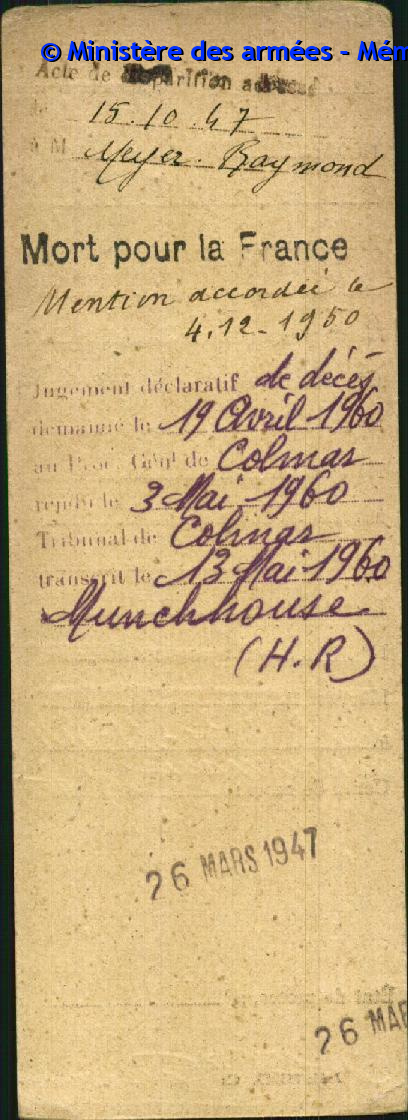 © Ministère des armées - Mém
Acte de disparition adressé
le 15.10.47
à M Meyer. Raymond
Mort pour la France
Mention accordée le
4.12.1950
Jugement déclaratif de décès
demandé le 19 Avril 1960
au Proc. Génl de Colmar
rendu le 3 Mai 1960
Tribunal de Colmar
transcrit le 13 Mai 1960
Munchhouse
(H.R)
26 MARS 1947
26 MAR